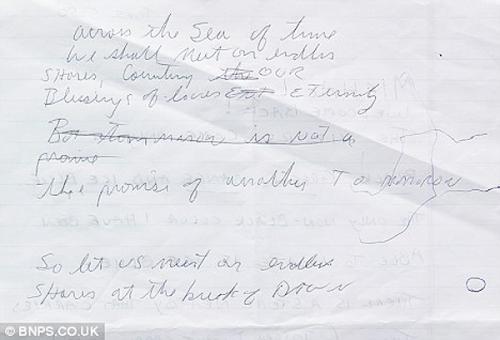 across the Sea of time
we shall meet on endless
SHORES, Counting the OUR
Blessings of loves Ent ETERNITY
But Tommorow is not a
promise
the promise of another Tomorrow
So let us meet on endless
SHORES at the break of DAWN
© BNPS.CO.UK